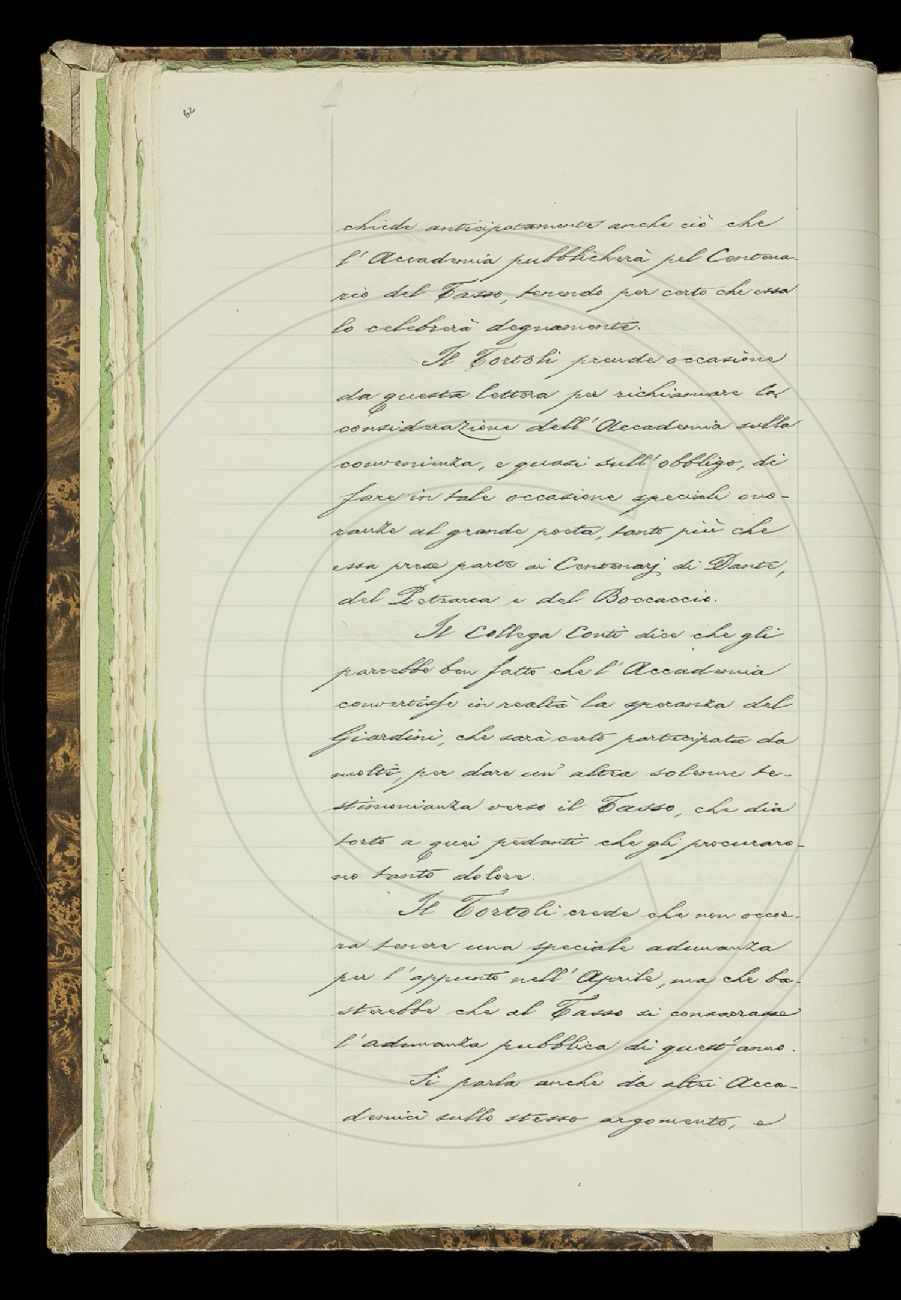 62
chiede anticipatamente anche ciò che
l'Accademia pubblicherà pel Centena-
rio del Tasso, tenendo per certo che essa
lo celebrerà degnamente.
Il Tortoli prende occasione
da questa lettera per richiamare la
considerazione dell'Accademia sulla
convenienza, e quasi sull'obbligo, di
fare in tale occasione speciali ono-
ranze al grande poeta, tanto più che
essa prese parte ai Centenarj di Dante,
del Petrarca e del Boccaccio.
Il Collega Conti dice che gli
parrebbe ben fatto che l'Accademia
convertisse in realtà la speranza del
Giardini, che sarà certo partecipata da
molti, per dare un'altra solenne te-
stimonianza verso il Tasso, che dia
torto a quei pedanti che gli procuraro-
no tanto dolore.
Il Tortoli crede che non occor-
ra tenere una speciale adunanza
per l'appunto nell'Aprile, ma che ba-
sterebbe che al Tasso si consacrasse
l'adunanza pubblica di quest'anno.
Si parla anche da altri Acca-
demici sullo stesso argomento, e